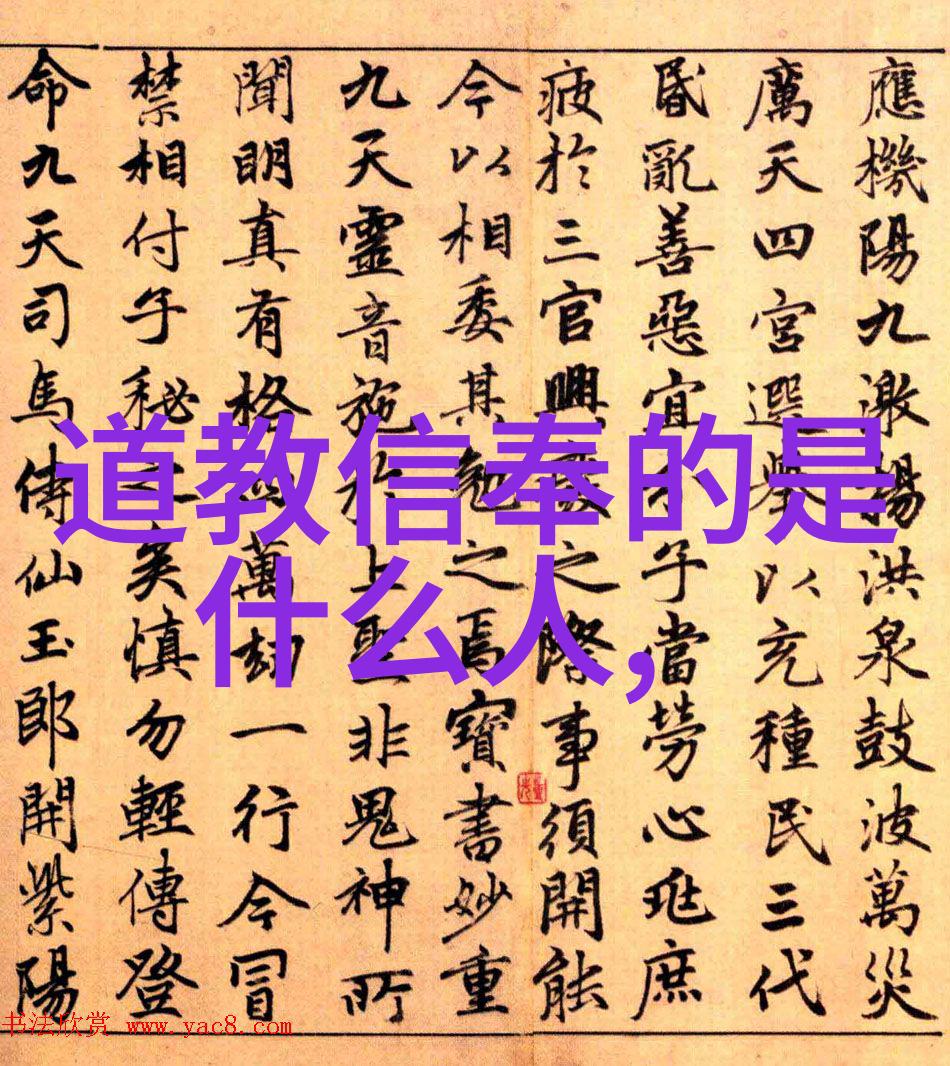 應機陽九激揚洪泉鼓波萬災
厲天四宮選舉以充種民三代
昏亂善惡宜分子當勞心兆庶
疲於三官興廢之際事須開能
今以相委其勉之焉寶書妙重
九天靈音施於上聖非鬼神所
聞明真有格四萬劫一行今冒
禁相付子秘之矣慎勿輕傳登
命九天司馬侍仙玉郎開紫陽
道教信奉的是
什么人,
书法欣赏 www.yac8.com